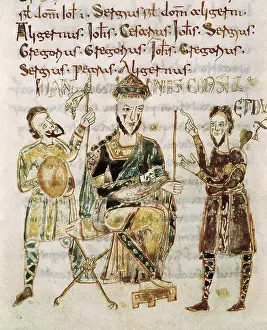 st dom Ioħ. Sergius st dom aligern.
Aligernus. Iohs. Cesarius Iohs. Sergius
Gregorius. Gregorius. Iohs. Gregorius.
Sergius. Petrus. Aligernus.
IOHAN NES CONSUL
ET DU